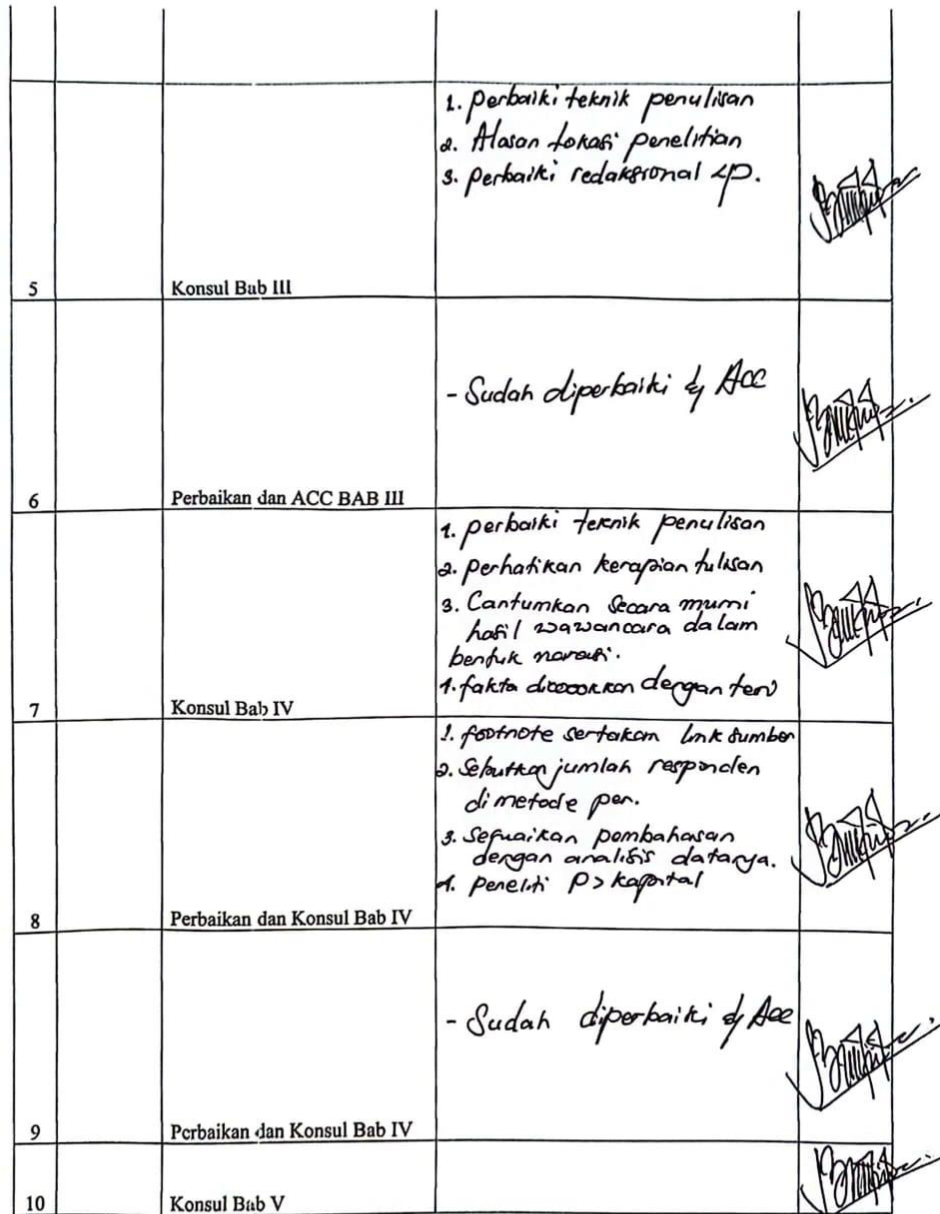 1. perbaiki teknik penulisan
2. Alasan Lokasi penelitian
3. perbaiki redaksional
5 Konsul Bab III
- Sudah diperbaiki & Acc
6 Perbaikan dan ACC BAB III
1. perbaiki teknik penulisan
2. perhatikan kerapian tulisan
3. Cantumkan Secara murni
hasil wawancara dalam
bentuk narasi.
4. fakta dicocokkan dengan teori
7 Konsul Bab IV
1. footnote sertakan link sumber
2. Sebutkan jumlah responden
di metode pen.
3. Sesuaikan pembahasan
dengan analisis datanya.
4. peneliti P > kapital
8 Perbaikan dan Konsul Bab IV
- Sudah diperbaiki & Acc
9 Perbaikan dan Konsul Bab IV
10 Konsul Bab V